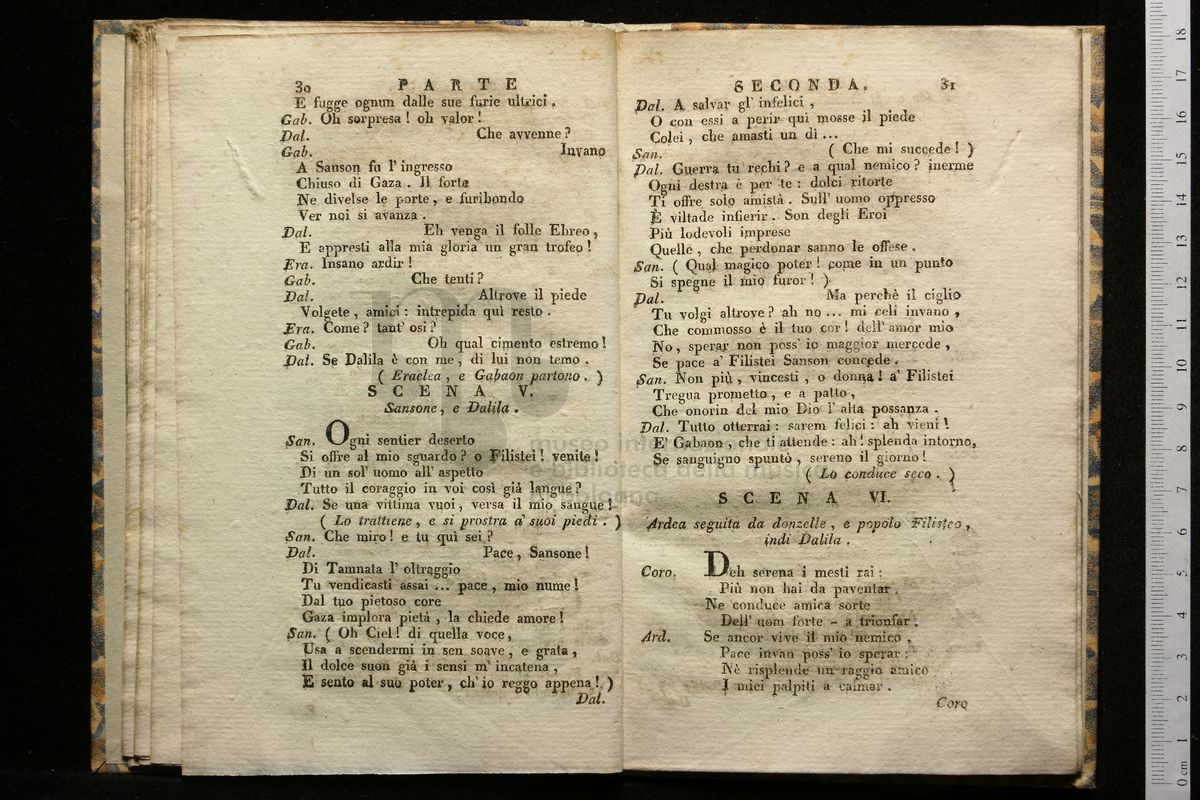 30 PARTE
E fugge ognun dalle sue furie ultrici.
Gab. Oh sorpresa! oh valor!
Dal. Che avvenne?
Gab. Invano
A Sanson fu l' ingresso
Chiuso di Gaza. Il forte
Ne divelse le porte, e furibondo
Ver noi si avanza.
Dal. Eh venga il folle Ebreo,
E appresti alla mia gloria un gran trofeo!
Era. Insano ardir!
Gab. Che tenti?
Dal. Altrove il piede
Volgete, amici: intrepida quì resto.
Era. Come? tant' osi?
Gab. Oh qual cimento estremo!
Dal. Se Dalila è con me, di lui non temo.
( Eraclea, e Gabaon partono. )
SCENA V.
Sansone, e Dalila.
San. Ogni sentier deserto
Si offre al mio sguardo? o Filistei! venite!
Di un sol' uomo all' aspetto
Tutto il coraggio in voi così già langue?
Dal. Se una vittima vuoi, versa il mio sangue!
( Lo trattiene, e si prostra a' suoi piedi. )
San. Che miro! e tu quì sei?
Dal. Pace, Sansone!
Di Tamnata l' oltraggio
Tu vendicasti assai ... pace, mio nume!
Dal tuo pietoso core
Gaza implora pietà, la chiede amore!
San. ( Oh Ciel! di quella voce,
Usa a scendermi in sen soave, e grata,
Il dolce suon già i sensi m' incatena,
E sento al suo poter, ch' io reggo appena! )
Dal.
SECONDA. 31
Dal. A salvar gl' infelici,
O con essi a perir quì mosse il piede
Colei, che amasti un dì ...
San. ( Che mi succede! )
Dal. Guerra tu rechi? e a qual nemico? inerme
Ogni destra è per te: dolci ritorte
Ti offre solo amistà. Sull' uomo oppresso
È viltade infierir. Son degli Eroi
Più lodevoli imprese
Quelle, che perdonar sanno le offese.
San. ( Qual magico poter! come in un punto
Si spegne il mio furor! )
Dal. Ma perchè il ciglio
Tu volgi altrove? ah no ... mi celi invano,
Che commosso è il tuo cor! dell' amor mio
No, sperar non poss' io maggior mercede,
Se pace a' Filistei Sanson concede.
San. Non più, vincesti, o donna! a' Filistei
Tregua prometto, e a patto,
Che onorin del mio Dio l' alta possanza.
Dal. Tutto otterrai: sarem felici: ah vieni!
E' Gabaon, che ti attende: ah! splenda intorno,
Se sanguigno spuntò, sereno il giorno!
( Lo conduce seco. )
SCENA VI.
Ardea seguita da donzelle, e popolo Filisteo,
indi Dalila.
Coro. Deh serena i mesti rai:
Più non hai da paventar.
Ne conduce amica sorte
Dell' uom forte - a trionfar.
Ard. Se ancor vive il mio nemico,
Pace invan poss' io sperar:
Nè risplende un raggio amico
I miei palpiti a calmar.
Coro